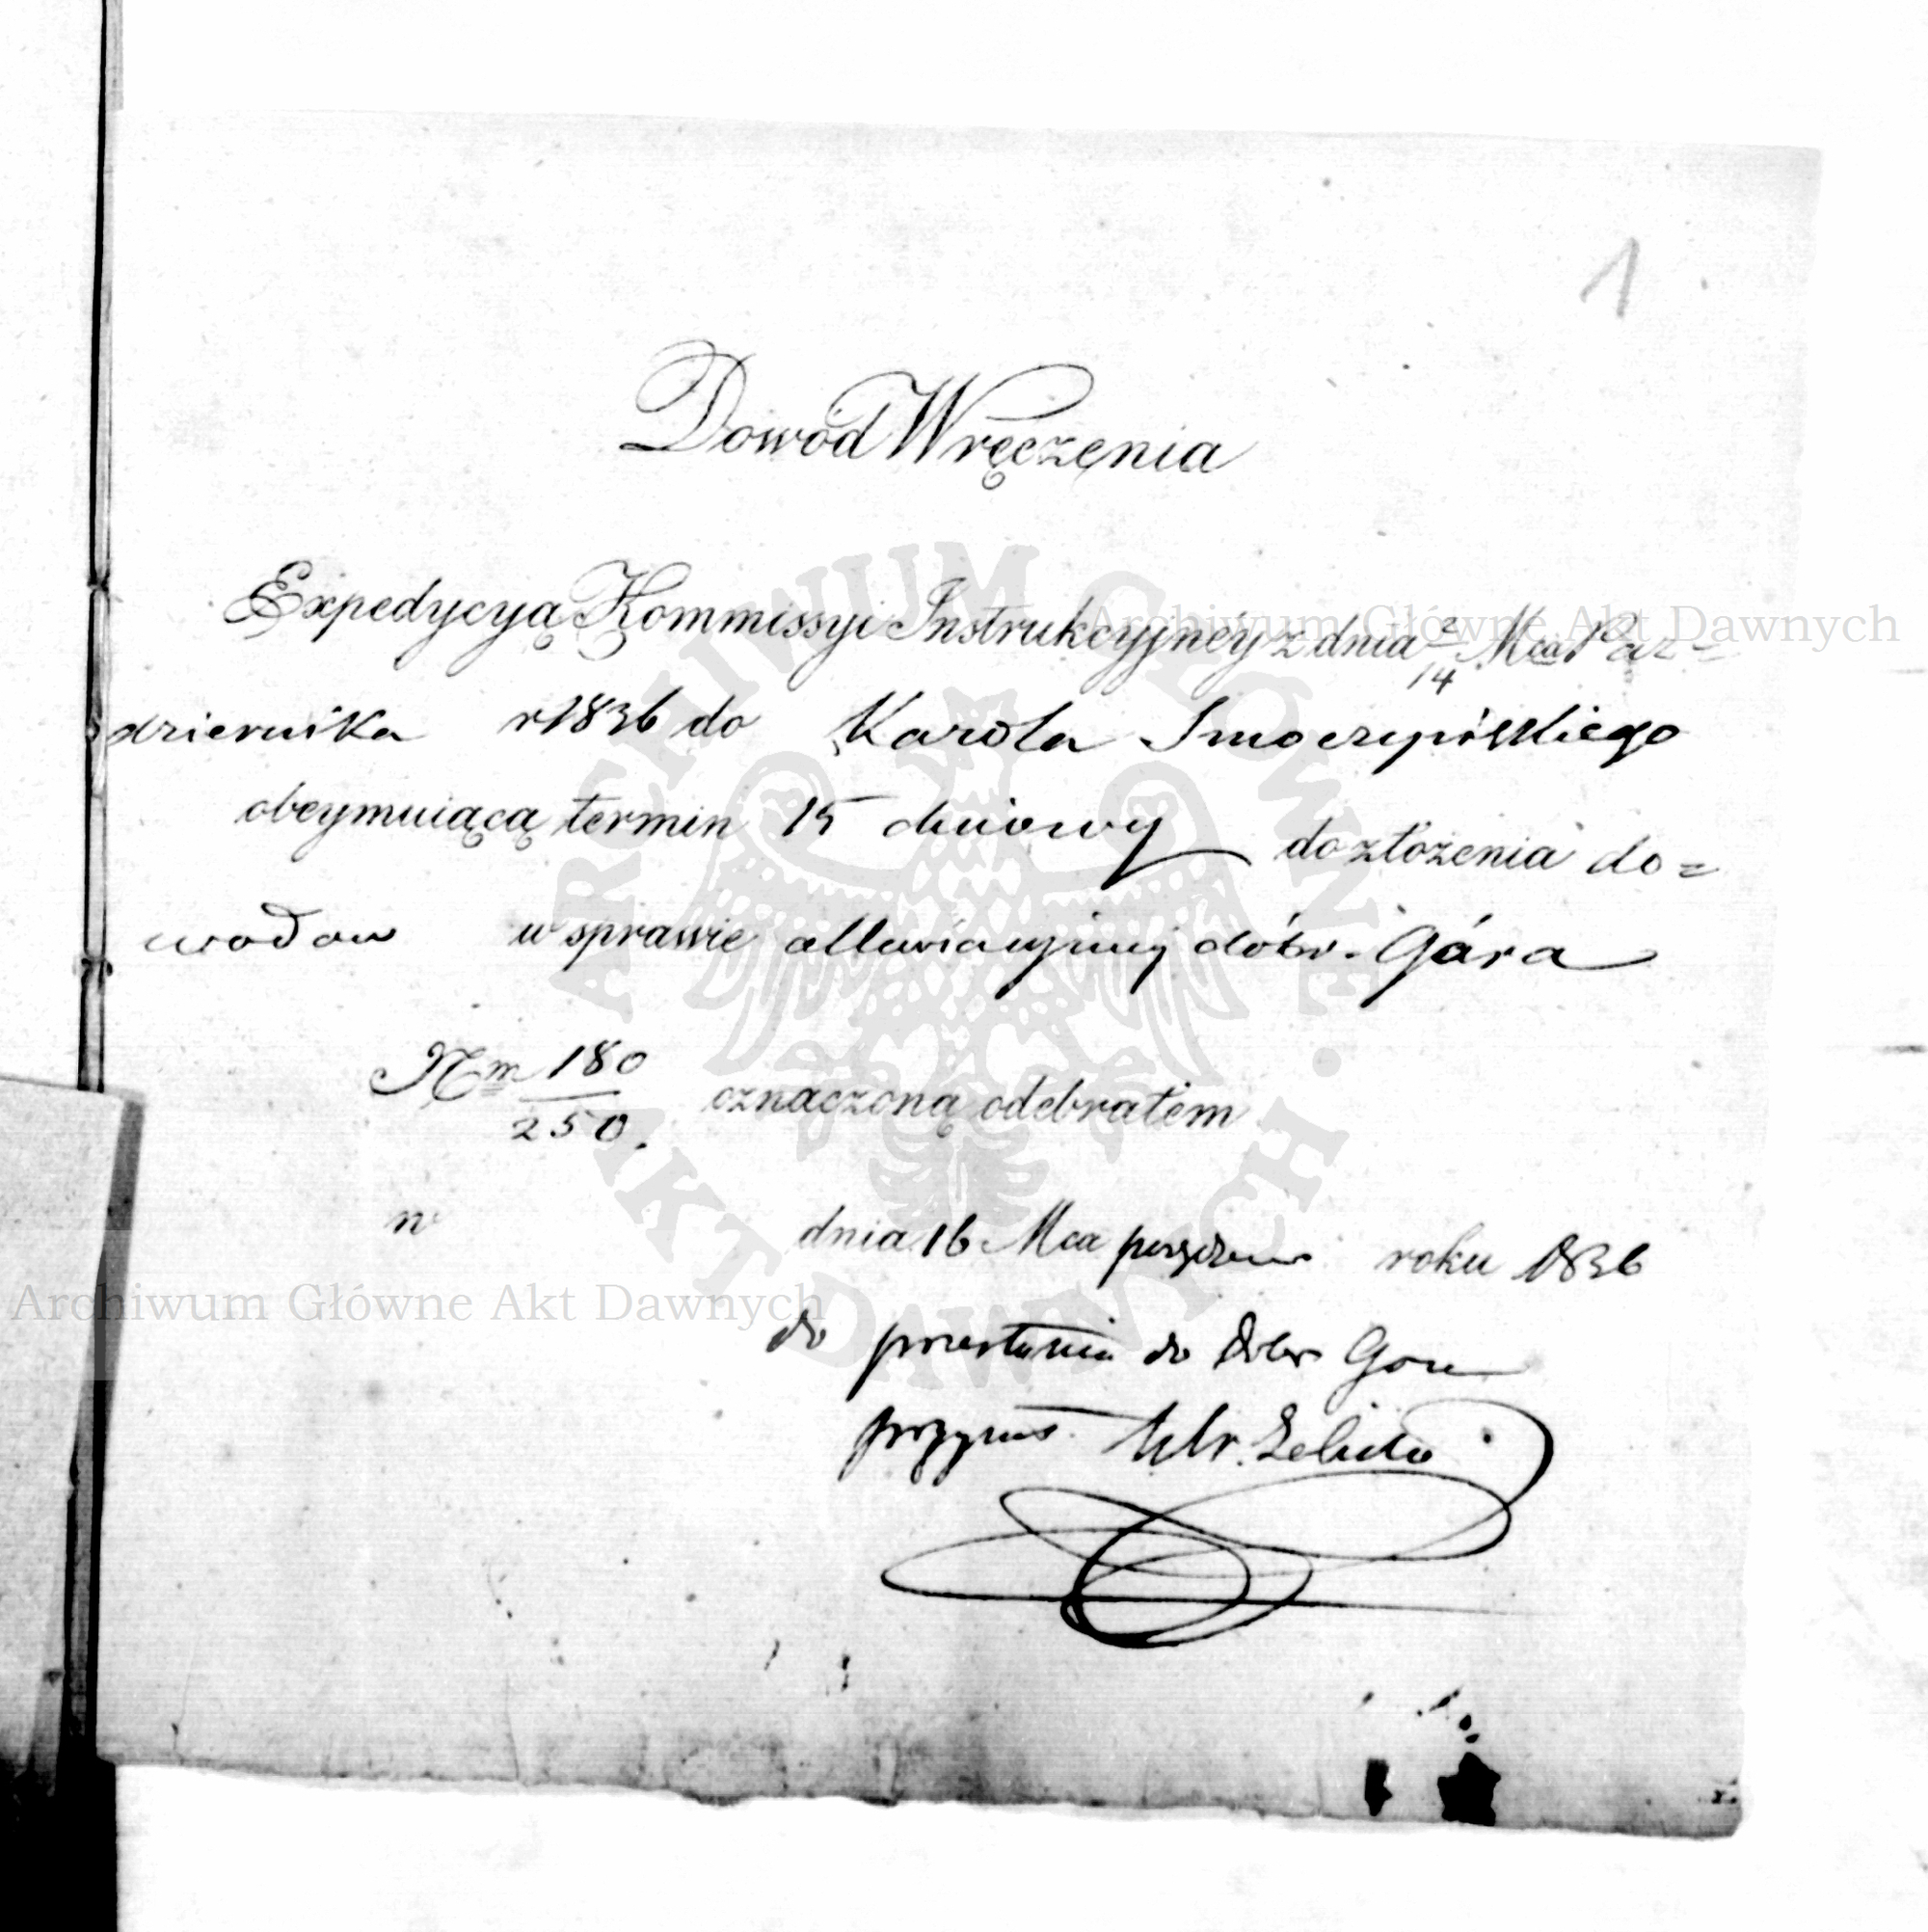 1
Dowód Wręczenia
Expedycyą Kommissyi Instrukcyjnéy z dnia 2/14 Mca Paz=
dziernika r 1836 do Karola Smoczyńskiego
obeymuiącą termin 15 dniowy do złożenia do=
wodow w sprawie alluwiacyjney dóbr Góra
Nrm 180/250. oznaczoną odebrałem
w dnia 16 Mca roku 1836
do przesłania do Dobr Gora
Archiwum Główne Akt Dawnych
Archiwum Główne Akt Dawnych
ARCHIWUM GŁÓWNE · AKT DAWNYCH ·